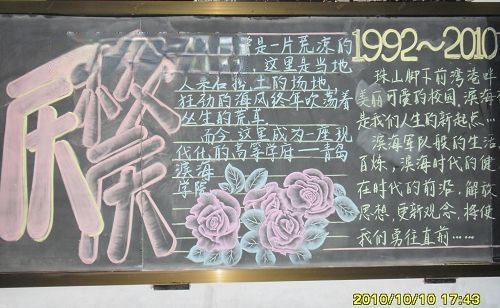 庆
是一片荒凉的
这里是当地
人采石挖土的场地
狂劲的海风终年吹荡着
丛生的荒草
而今这里成为一座现
代化的高等学府——青岛
滨海
学院
1992~2010
珠山脚下前湾港畔
美丽可爱的校园,滨海
是我们人生的新起点…
滨海军队般的生活
百炼,滨海时代的健
在时代的前沿,解放
思想,更新观念,将使
我们勇往直前……
2010/10/10 17:43